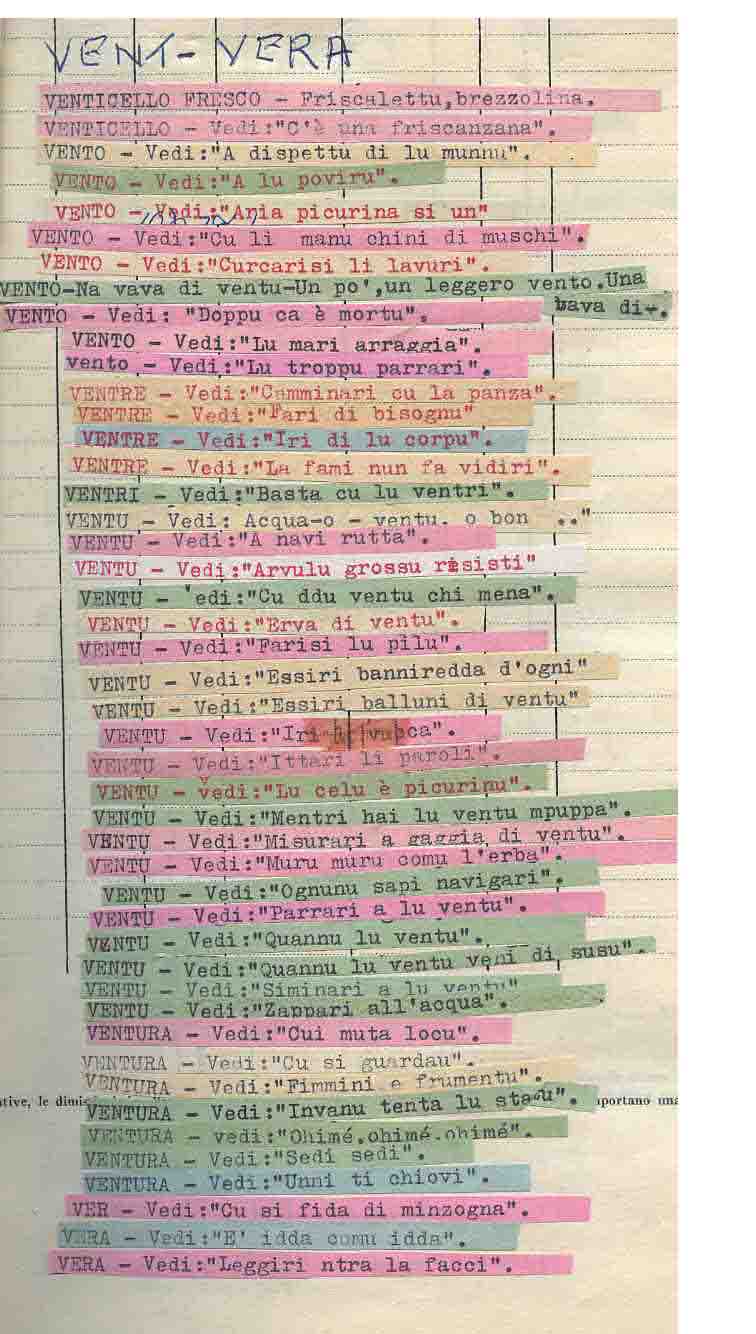 VENT-VERA
VENTICELLO FRESCO - Friscalettu,brezzolina.
VENTICELLO - Vedi:"C'è una friscanzana".
VENTO - Vedi:"A dispettu di lu munnu".
VENTO - Vedi:"A lu poviru".
VENTO - Vedi:"Aria picurina si un"
VENTO - Vedi:"Cu li manu chini di muschi".
VENTO - Vedi:"Curcarisi li lavuri".
VENTO-Na vava di ventu-Un po',un leggero vento.Una
bava di-.
VENTO - Vedi: "Doppu ca è mortu".
VENTO - Vedi:"Lu mari arraggia".
vento - Vedi:"Lu troppu parrari".
VENTRE - Vedi:"Camminari cu la panza".
VENTRE - Vedi:"Fari di bisognu"
VENTRE - Vedi:"Iri di lu corpu".
VENTRE - Vedi:"La fami nun fa vidiri".
VENTRI - Vedi:"Basta cu lu ventri".
VENTU - Vedi: Acqua-o - ventu. o bon .."
VENTU - Vedi:"A navi rutta".
VENTU - Vedi:"Arvulu grossu risisti"
VENTU - 'edi:"Cu ddu ventu chi mena".
VENTU - Vedi:"Erva di ventu".
VENTU - Vedi:"Farisi lu pilu".
VENTU - Vedi:"Essiri banniredda d'ogni"
VENTU - Vedi:"Essiri balluni di ventu"
VENTU - Vedi:"Iri
VENTU - Vedi:"Ittari li paroli".
VENTU - vedi:"Lu celu è picurinu".
VENTU - Vedi:"Mentri hai lu ventu mpuppa".
VENTU - Vedi:"Misurari a gaggia di ventu".
VENTU - Vedi:"Muru muru comu l'erba".
VENTU - Vedi:"Ognunu sapi navigari".
VENTU - Vedi:"Parrari a lu ventu".
VENTU - Vedi:"Quannu lu ventu".
VENTU - Vedi:"Quannu lu ventu veni di susu".
VENTU - Vedi:"Siminari a lu ventu"
VENTU - Vedi:"Zappari all'acqua".
VENTURA - Vedi:"Cui muta locu".
VENTURA - Vedi:"Cu si guardau".
VENTURA - Vedi:"Fimmini e frumentu".
VENTURA - Vedi:"Invanu tenta lu statu".
VENTURA - vedi:"Ohimé,ohimé.ohimé".
VENTURA - Vedi:"Sedi sedi".
VENTURA - Vedi:"Unni ti chiovi".
VER - Vedi:"Cu si fida di minzogna".
VERA - Vedi:"E' idda comu idda".
VERA - Vedi:"Leggiri ntra la facci".